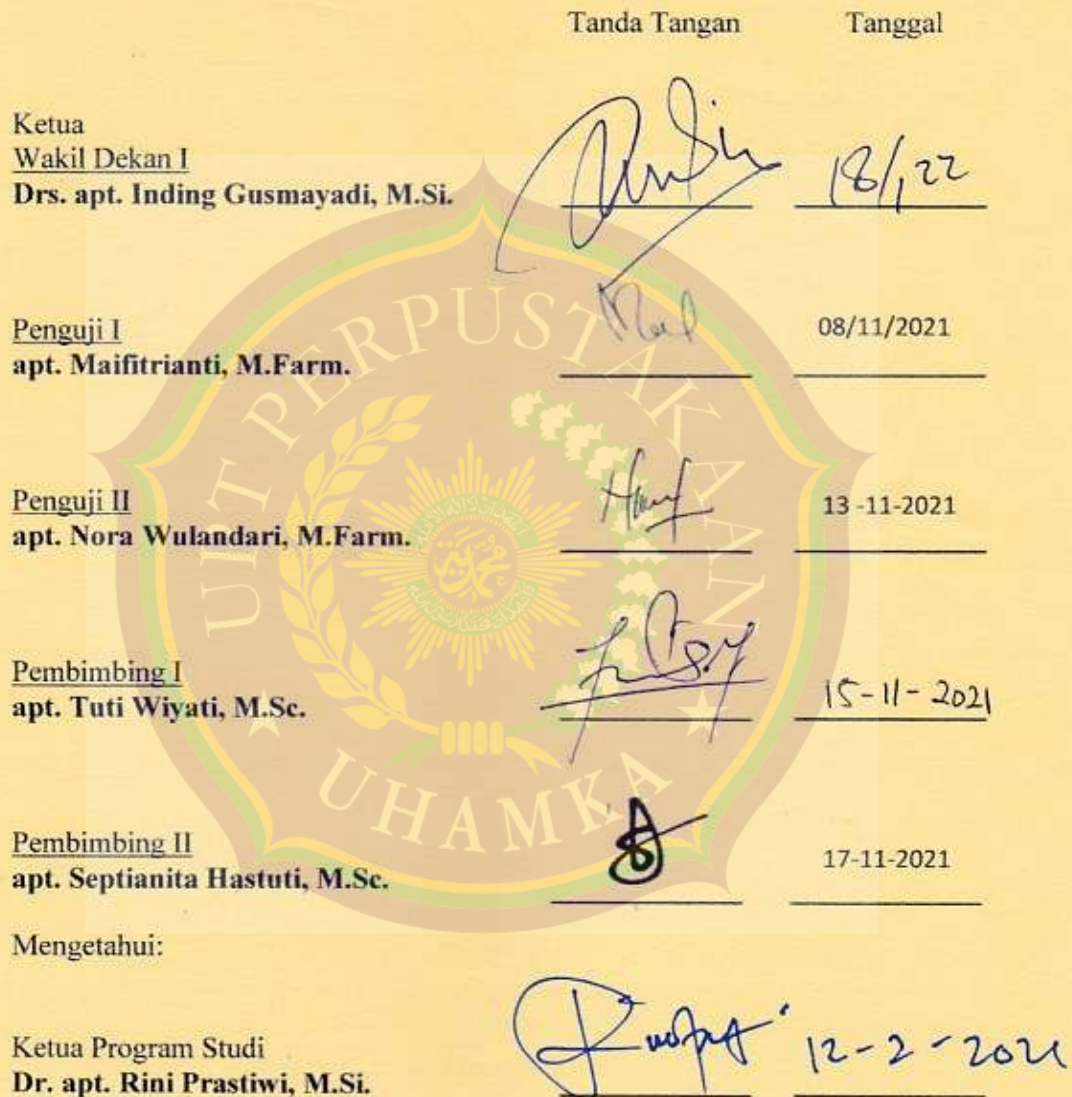 Tanda Tangan Tanggal
Ketua
Wakil Dekan I
Drs. apt. Inding Gusmayadi, M.Si.
18/1 22
Penguji I
08/11/2021
apt. Maifitrianti, M.Farm.
Penguji II
13 -11-2021
apt. Nora Wulandari, M.Farm.
Pembimbing I
apt. Tuti Wiyati, M.Sc.
15-11-2021
Pembimbing II
17-11-2021
apt. Septianita Hastuti, M.Sc.
Mengetahui:
Ketua Program Studi
Dr. apt. Rini Prastiwi, M.Si.
12-2-
UPT PERPUSTAKAAN
UHAMKA